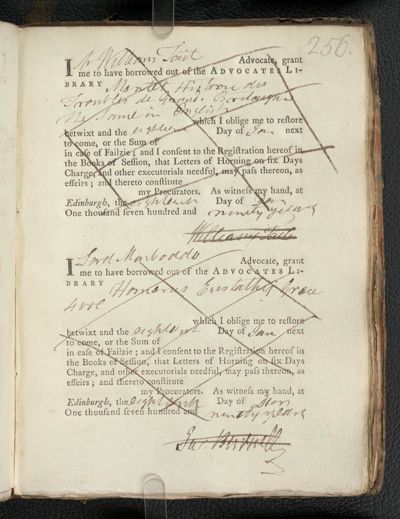 256.
I Mr William Tait Advocate, grant
me to have borrowed out of the ADVOCATES LI-
BRARY Montet Histoire des
Troubles de Grand Bretaigne
the Same in English
which I oblige me to restore
betwixt and the eighteen Day of Jan next
to come, or the Sum of
in case of Failzie; and I consent to the Registration hereof in
the Books of Session, that Letters of Horning on six Days
Charge, and other executorials needful, may pass thereon, as
effeirs; and thereto constitute
my Procurators. As witness my hand, at
Edinburgh, the eighteenth Day of Jan
One thousand seven hundred and ninety years
William Tait
I Lord Monboddo Advocate, grant
me to have borrowed out of the ADVOCATES LI-
BRARY Homerus Eustathii Graece
4 vol
which I oblige me to restore
betwixt and the eighteen Day of Jan next
to come, or the Sum of
in case of Failzie; and I consent to the Registration hereof in
the Books of Session, that Letters of Horning on six Days
Charge, and other executorials needful, may pass thereon, as
effeirs; and thereto constitute
my Procurators. As witness my hand, at
Edinburgh, the eighteenth Day of Jan
One thousand seven hundred and ninety years
Jas. Burnett